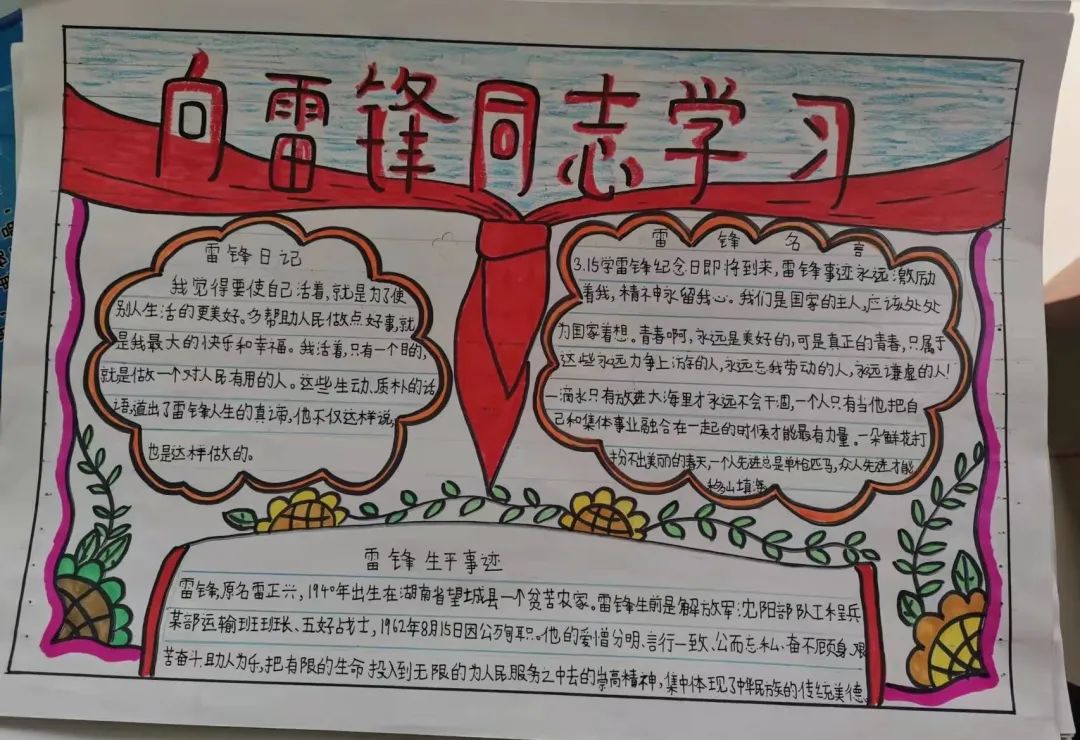 向雷锋同志学习
雷锋日记
我觉得要使自己活着,就是为了使
别人生活的更美好。多帮助人民做点好事,就
是我最大的快乐和幸福。我活着,只有一个目的,
就是做一个对人民有用的人。这些生动、质朴的话
语,道出了雷锋人生的真谛,他不仅这样说,
也是这样做的。
雷锋名言
3.15学雷锋纪念日即将到来,雷锋事迹永远激励
着我,精神永留我心。我们是国家的主人,应该处处
为国家着想。青春啊,永远是美好的,可是真正的青春,只属于
这些永远力争上游的人,永远忘我劳动的人,永远谦虚的人!
一滴水只有放进大海里才永远不会干涸,一个人只有当他把自
己和集体事业融合在一起的时候才能最有力量。一朵鲜花打
扮不出美丽的春天,一个人先进总是单枪匹马,众人先进才能
移山填海
雷锋生平事迹
雷锋,原名雷正兴,1940年出生在湖南省望城县一个贫苦农家。雷锋生前是解放军沈阳部队工程兵
某部运输班班长、五好战士,1962年8月15日因公殉职。他的爱憎分明、言行一致、公而忘私、奋不顾身、艰
苦奋斗、助人为乐,把有限的生命投入到无限的为人民服务之中去的崇高精神,集中体现了中华民族的传统美德。